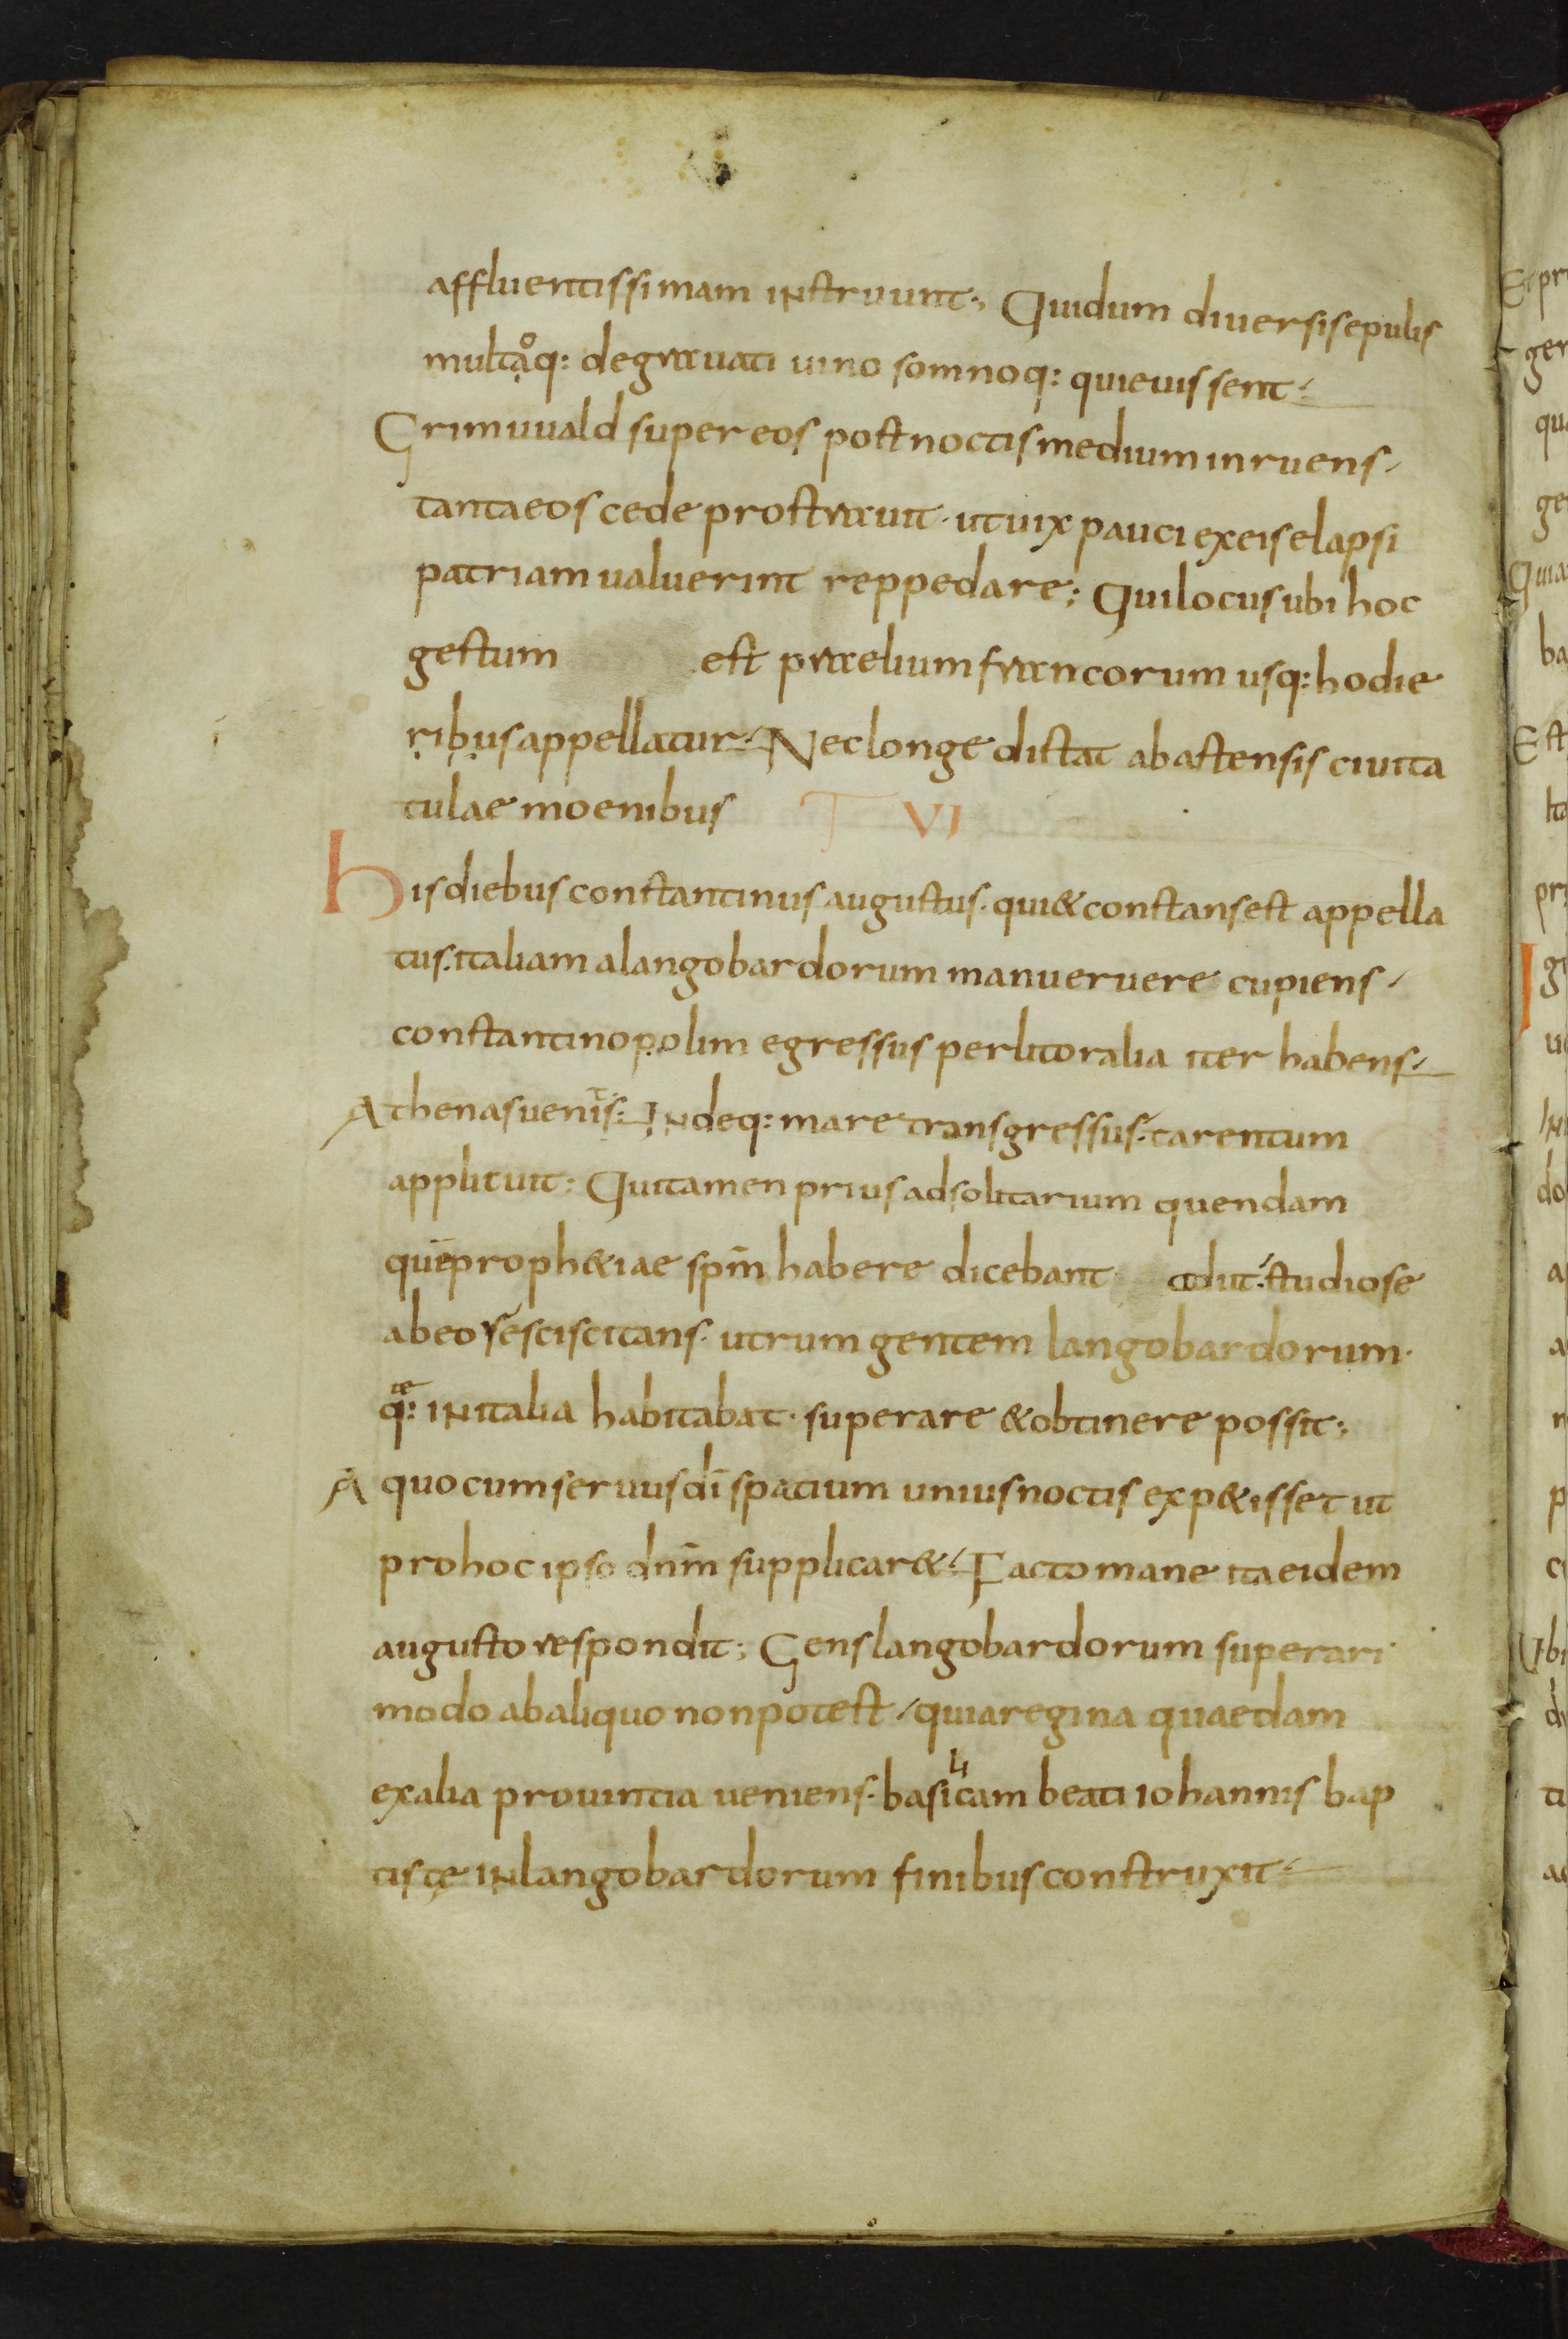 affluentissimam instruunt; Qui dum diuersis epulis
multaoq: degrauati uino somnoq: quieuissent.
Grimuuald super eos post noctis medium inruens.
tanta eos cede prostrauit. ut uix pauci ex eis elapsi
patriam ualuerint reppedare; Qui locus ubi hoc
gestum est praelium francorum usq: hodie
ribus appellatur. Nec longe distat ab astensis ciuita
tulae moenibus T VI
His diebus constantinus augustus. qui & constans est appella
tus. italiam a langobardorum manu eruere cupiens.
constantinopolim egressus per litoralia iter habens.
Athenas uenis: Indeq: mare transgressus. tarentum
applituit: Qui tamen prius ad solitarium quendam
quē proph&iae spm̄ habere dicebant adiit. studiose
ab eo sesciscitans. utrum gentem langobardorum.
q̄: te in italia habitabat. superare & obtinere possit;
A quo cum seruus dī spatium unius noctis exp&isset ut
pro hoc ipso dnm̄ supplicar&. Facto mane ita eidem
augusto respondit; Gens langobardorum superari
modo ab aliquo non potest. quia regina quaedam
ex alia prouintia ueniens. basilicam beati iohannis bap
tistę in langobardorum finibus construxit.